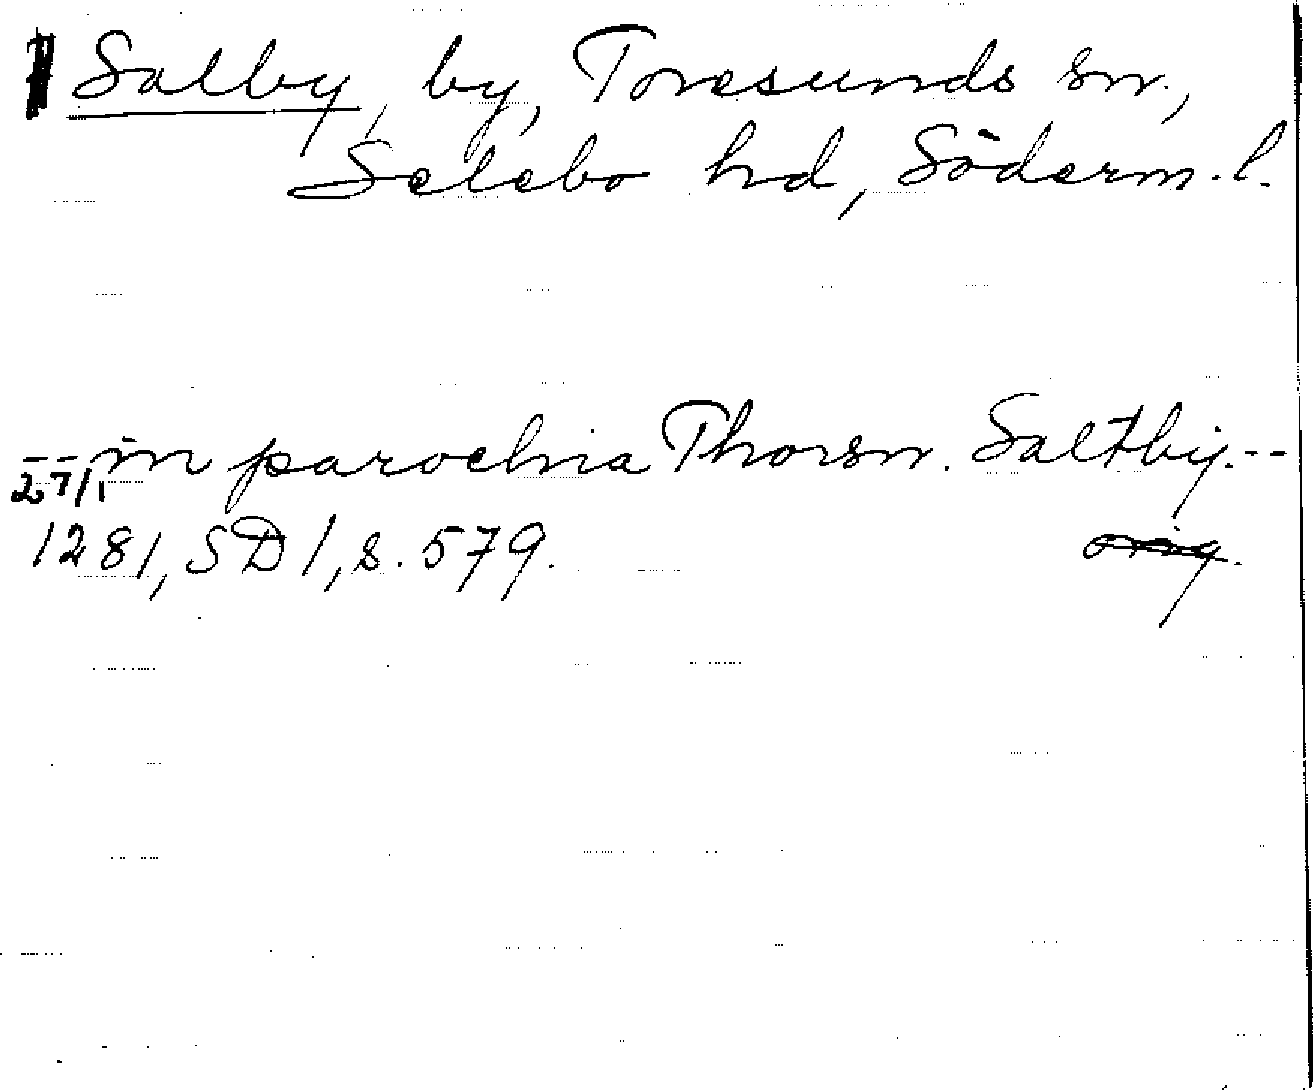 Salby, by, Toresunds sn.,
Selebo hd, Söderm. l.
-- in parochia Thorsn. Saltby. --
27/1
1281, SD 1, s. 579. orig.